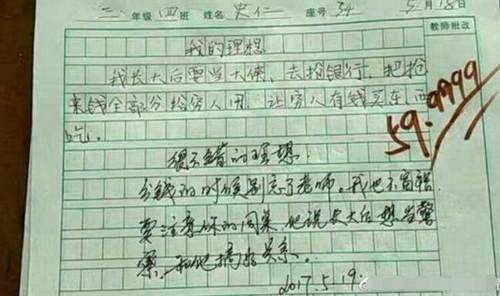 三 年级 四 班 姓名 史仁 座号 34 5月18日
教师批改
我的理想
我长大后要当大侠，去抢银行，把抢
来钱全部分给穷人用，让穷人有钱买东西
吃。
59.9999
很不错的理想
分钱的时候别忘了老师。我也不富裕
要注意你的同桌，他说长大后想当警
察，和他搞好关系。
2017.5.19.